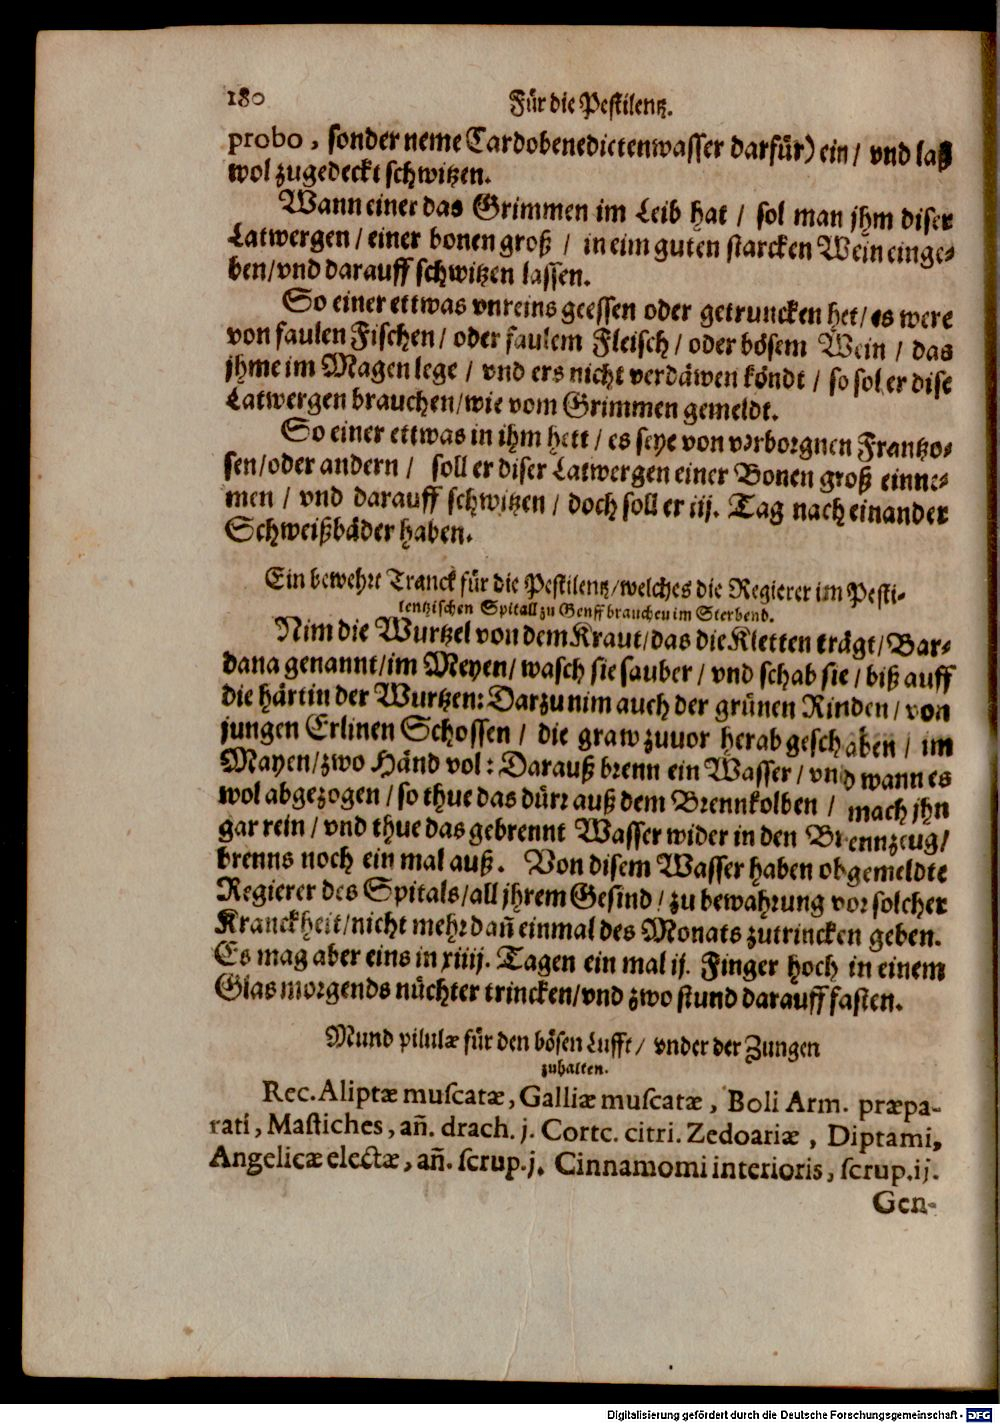 180 Für die Pestilentz.
probo, sonder neme Cardobenedictenwasser darfür) ein / vnd laß
wol zugedeckt schwitzen.
Wann einer das Grimmen im Leib hat / sol man jhm diser
Latwergen / einer bonen groß / in eim guten starcken Wein einge-
ben/vnd darauff schwitzen lassen.
So einer ettwas vnreins geessen oder getruncken het/es were
von faulen Fischen / oder faulem Fleisch / oder bösem Wein / das
jhme im Magen lege / vnd ers nicht verdäwen köndt / so sol er dise
Latwergen brauchen/wie vom Grimmen gemeldt.
So einer ettwas in ihm hett / es seye von verborgnen Frantzo-
sen/oder andern / soll er diser Latwergen einer Bonen groß einne-
men / vnd darauff schwitzen / doch soll er iij. Tag nach einander
Schweißbäder haben.
Ein bewehrt Tranck für die Pestilentz/welches die Regierer im Pesti-
lentzischen Spitall zu Genff brauchen im Sterbend.
Nim die Wurtzel von dem Kraut/das die Kletten trägt/Bar-
dana genannt/im Meyen/ wasch sie sauber / vnd schab sie / biß auff
die härtin der Wurtzen: Darzu nim auch der grünen Rinden / von
jungen Erlinen Schossen / die graw zuuor herab geschaben / im
Mayen/zwo Händ vol: Darauß brenn ein Wasser / vnd wann es
wol abgezogen / so thue das dürr auß dem Brennkolben / mach jhn
gar rein / vnd thue das gebrennt Wasser wider in den Brennzeug/
brenns noch ein mal auß. Von disem Wasser haben obgemeldte
Regierer des Spitals/all jhrem Gesind / zu bewahrung vor solcher
Kranckheit/nicht mehr dañ einmal des Monats zutrincken geben.
Es mag aber eins in xiiij. Tagen ein mal ij. Finger hoch in einem
Glas morgends nüchter trincken/vnd zwo stund darauff fasten.
Mund pilulæ für den bösen Lufft / vnder der Zungen
zuhalten.
Rec. Aliptæ muscatæ, Galliæ muscatæ, Boli Arm. præpa-
rati, Mastiches, añ. drach. j. Cortc. citri. Zedoariæ, Diptami,
Angelicæ electæ, añ. scrup. j. Cinnamomi interioris, scrup. ij.
Gen-
Digitalisierung gefördert durch die Deutsche Forschungsgemeinschaft - DFG